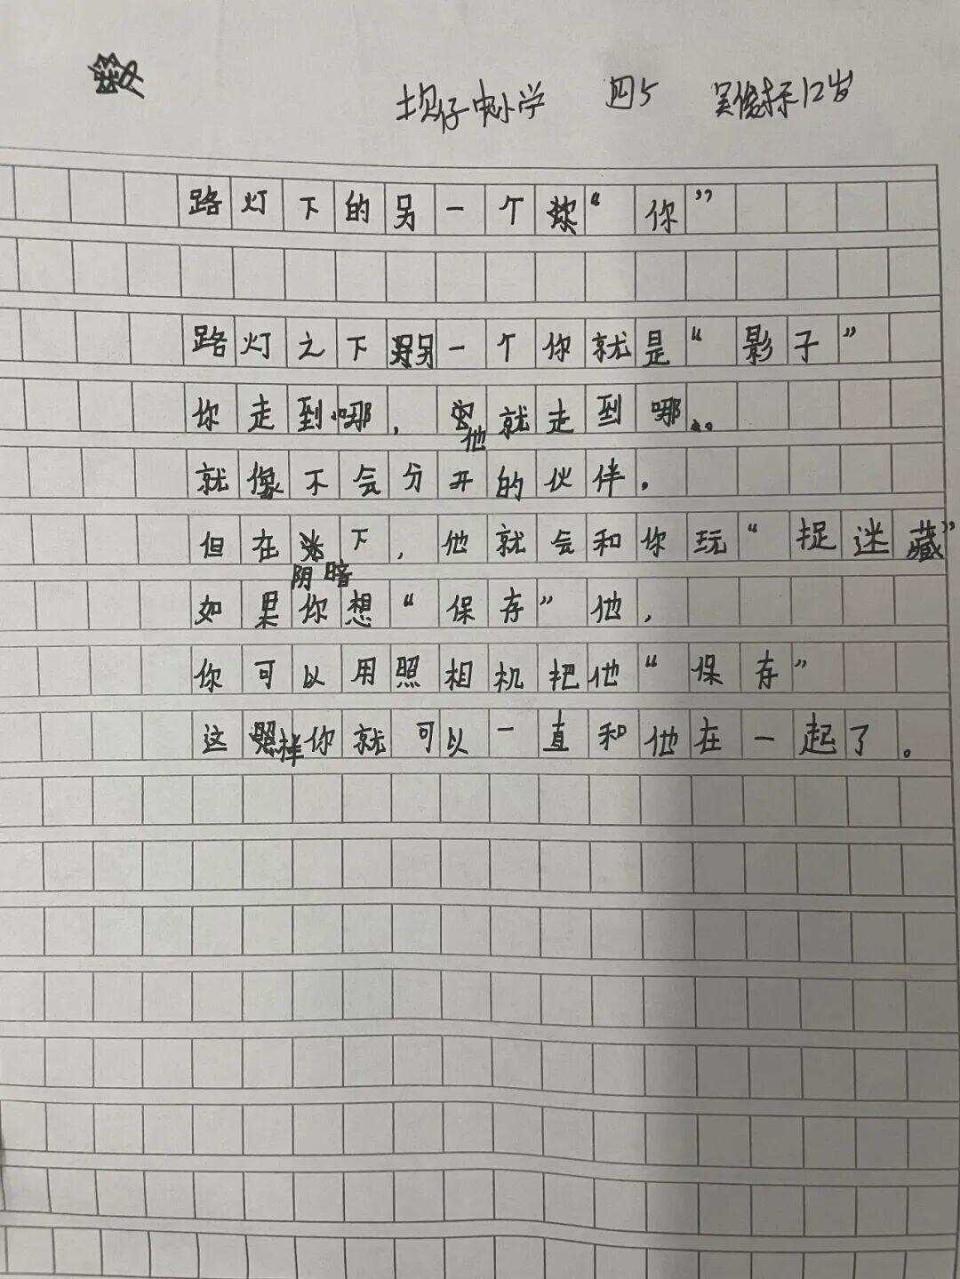 坝仔中心小学 四5 吴俊标12岁
路灯下的另一个“你”
路灯之下另一个你就是“影子”
你走到哪,他就走到哪。
就像不会分开的伙伴。
但在阴暗下,他就会和你玩“捉迷藏”
如果你想“保存”他,
你可以用照相机把他“保存”
这样你就可以一直和他在一起了。